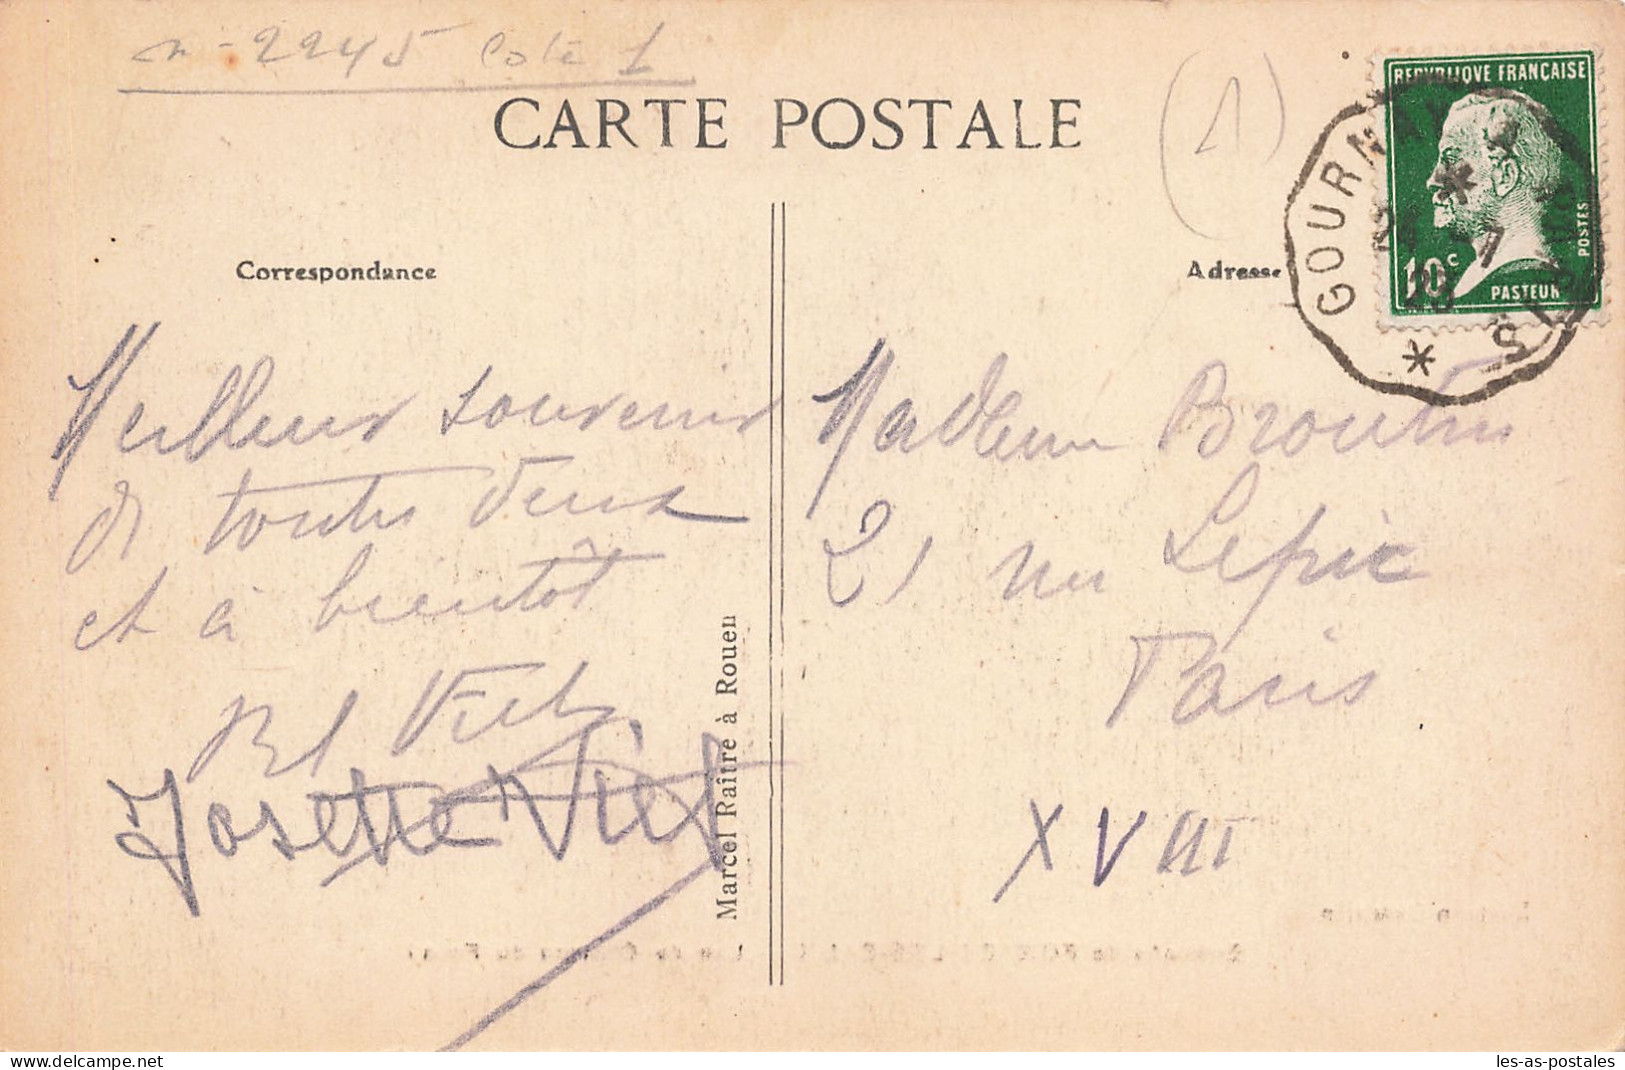 n - 2245 Cote 1
CARTE POSTALE
(1)
REPUBLIQUE FRANÇAISE
10c
PASTEUR
POSTES
GOURNAY A
21 -7
Correspondance
Adresse
Meilleurs souvenirs
de toutes deux
et à bientôt
Josette Viel
Marcel Raître à Rouen
Madame Broutin
21 rue Lepic
Paris
XVIII
les-as-postales